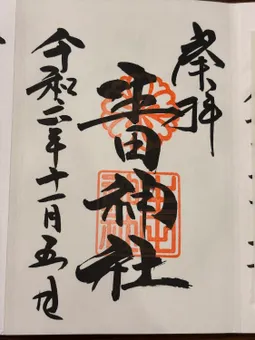 奉拝
田神社
令和二年十一月五日